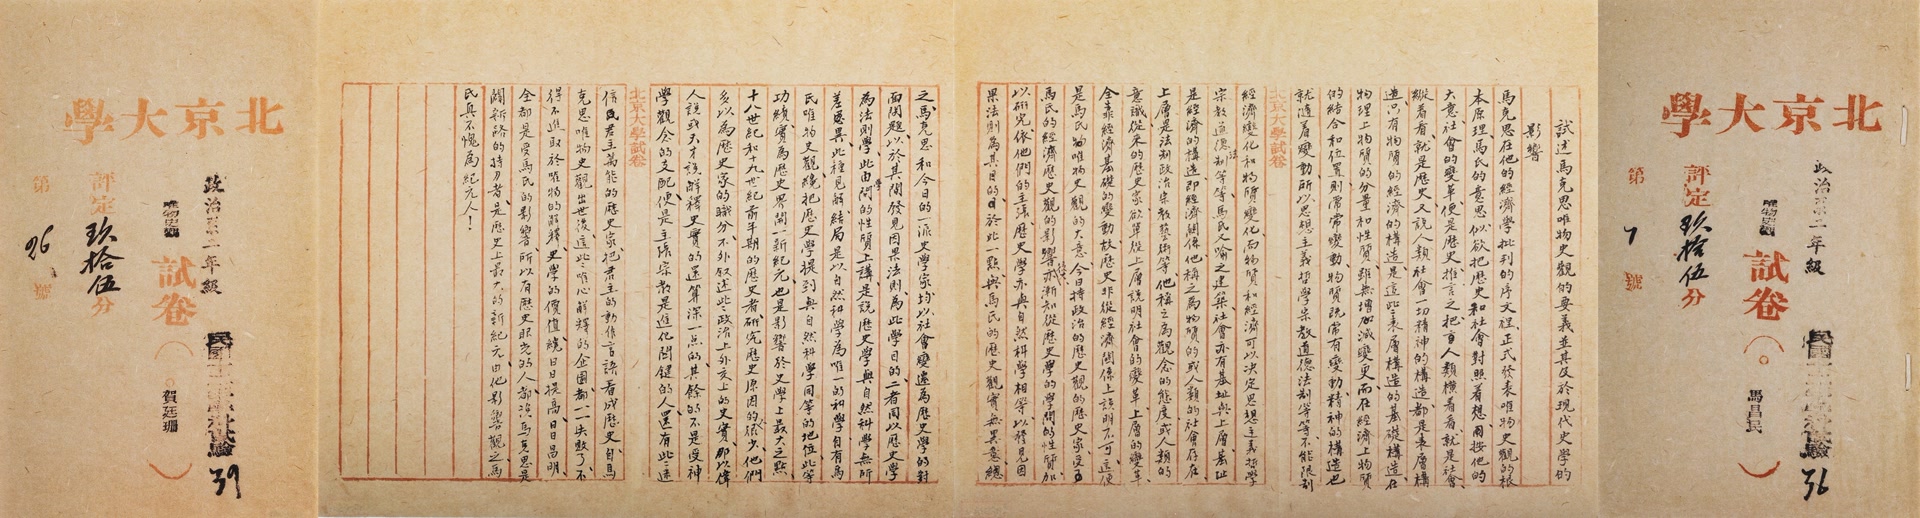 北京大學
政治系二年級
唯物史觀
試卷
馬昌民
評定玖拾伍分
第7號
36
試述馬克思唯物史觀的要義並其及於現代史學的
影響
馬克思在他的經濟學批判的序文裡、正式發表唯物史觀的根
本原理、馬氏的意思似欲把歷史和社會對照着想、用按他的
大意社會的變革便是歷史、推言之把人類橫着看、就是社會
縱着看看、就是歷史、又說人類社會一切精神的構造都是表層構
造、只有物質的經濟的構造、是這些表層構造的基礎構造、在
物理上物質的分量和性質雖無增加減變更、而在經濟上物質
的結合和位置則常常變動、物質既常有變動、精神的構造也
就隨着變動、所以思想主義哲學宗教道德法制等等不能限制
經濟變化和物質變化、而物質和經濟可以決定思想主義哲學
宗教道德法制等等、馬氏又喻之建築、社會亦有基址與上層、基址
是經濟的構造、即經濟關係、他稱之為物質的或人類的社會存在、
上層是法制政治宗教藝術等、他稱之為觀念的態度或人類的
意識、從來的歷史家欲單從上層說明社會的變革、上層的變革
全靠經濟基礎的變動、故歷史非從經濟關係上說明不可、這便
是馬氏的唯物史觀的大意、今日持政治的歷史觀的歷史家、受了
馬氏的經濟歷史觀的影響、亦漸知從歷史學的學問的性質加
以研究、依他們的主張、歷史學亦與自然科學相等、以發見因
果法則為其目的、於此一點、與馬氏的歷史觀實無異意、總
之、馬克思和今日的一派史學家均以社會變遷為歷史學的對
面問題、以於其間發見因果法則為此學目的、二者同以歷史學
為法則學、此由學問的性質上講、是說歷史學與自然科學無所
差異、此種見解結局是以自然科學為唯一的科學、自有馬
民唯物史觀纔把歷史學提到與自然科學同等的地位、此等
功績、實為歷史界開一新紀元、也是影響於史學上最大之點、
十八世紀和十九世紀前半期的歷史者、研究歷史原因的很少、他們
多以為歷史家的職分、不外敘述些政治上外交上的史實、那以偉
人說或天才說解釋史實的、還算深一點的、其餘的不是受神
學觀念的支配、便是主張宗教是進化關鍵的人、還有些迷
信民君主萬能的歷史家、把君主的動作言語看成歷史、自馬
克思唯物史觀出世後、這些唯心解釋的企圖都一一失敗了、不
得不進取於唯物的解釋、史學的價值纔日日提高、日日昌明、
全都是受馬氏的影響、所以有歷史眼光的人都說馬克思是
闢新路的持刀者、是歷史上最大的新紀元、由他影響觀之馬
民真不愧為紀元人！
北京大學試卷
北京大學試卷
北京大學
政治系二年級
唯物史觀
試卷
賀廷珊
評定玖拾伍分
第26號
39